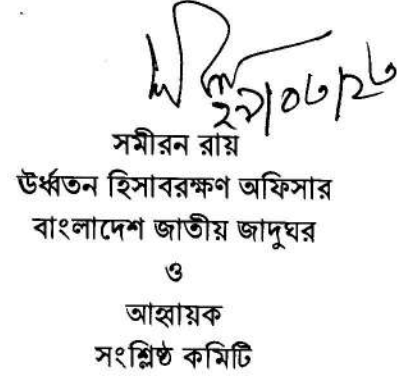 ২৯/০৩/২৩
সমীরন রায়
উর্ধ্বতন হিসাবরক্ষণ অফিসার
বাংলাদেশ জাতীয় জাদুঘর
ও
আহ্বায়ক
সংশ্লিষ্ঠ কমিটি